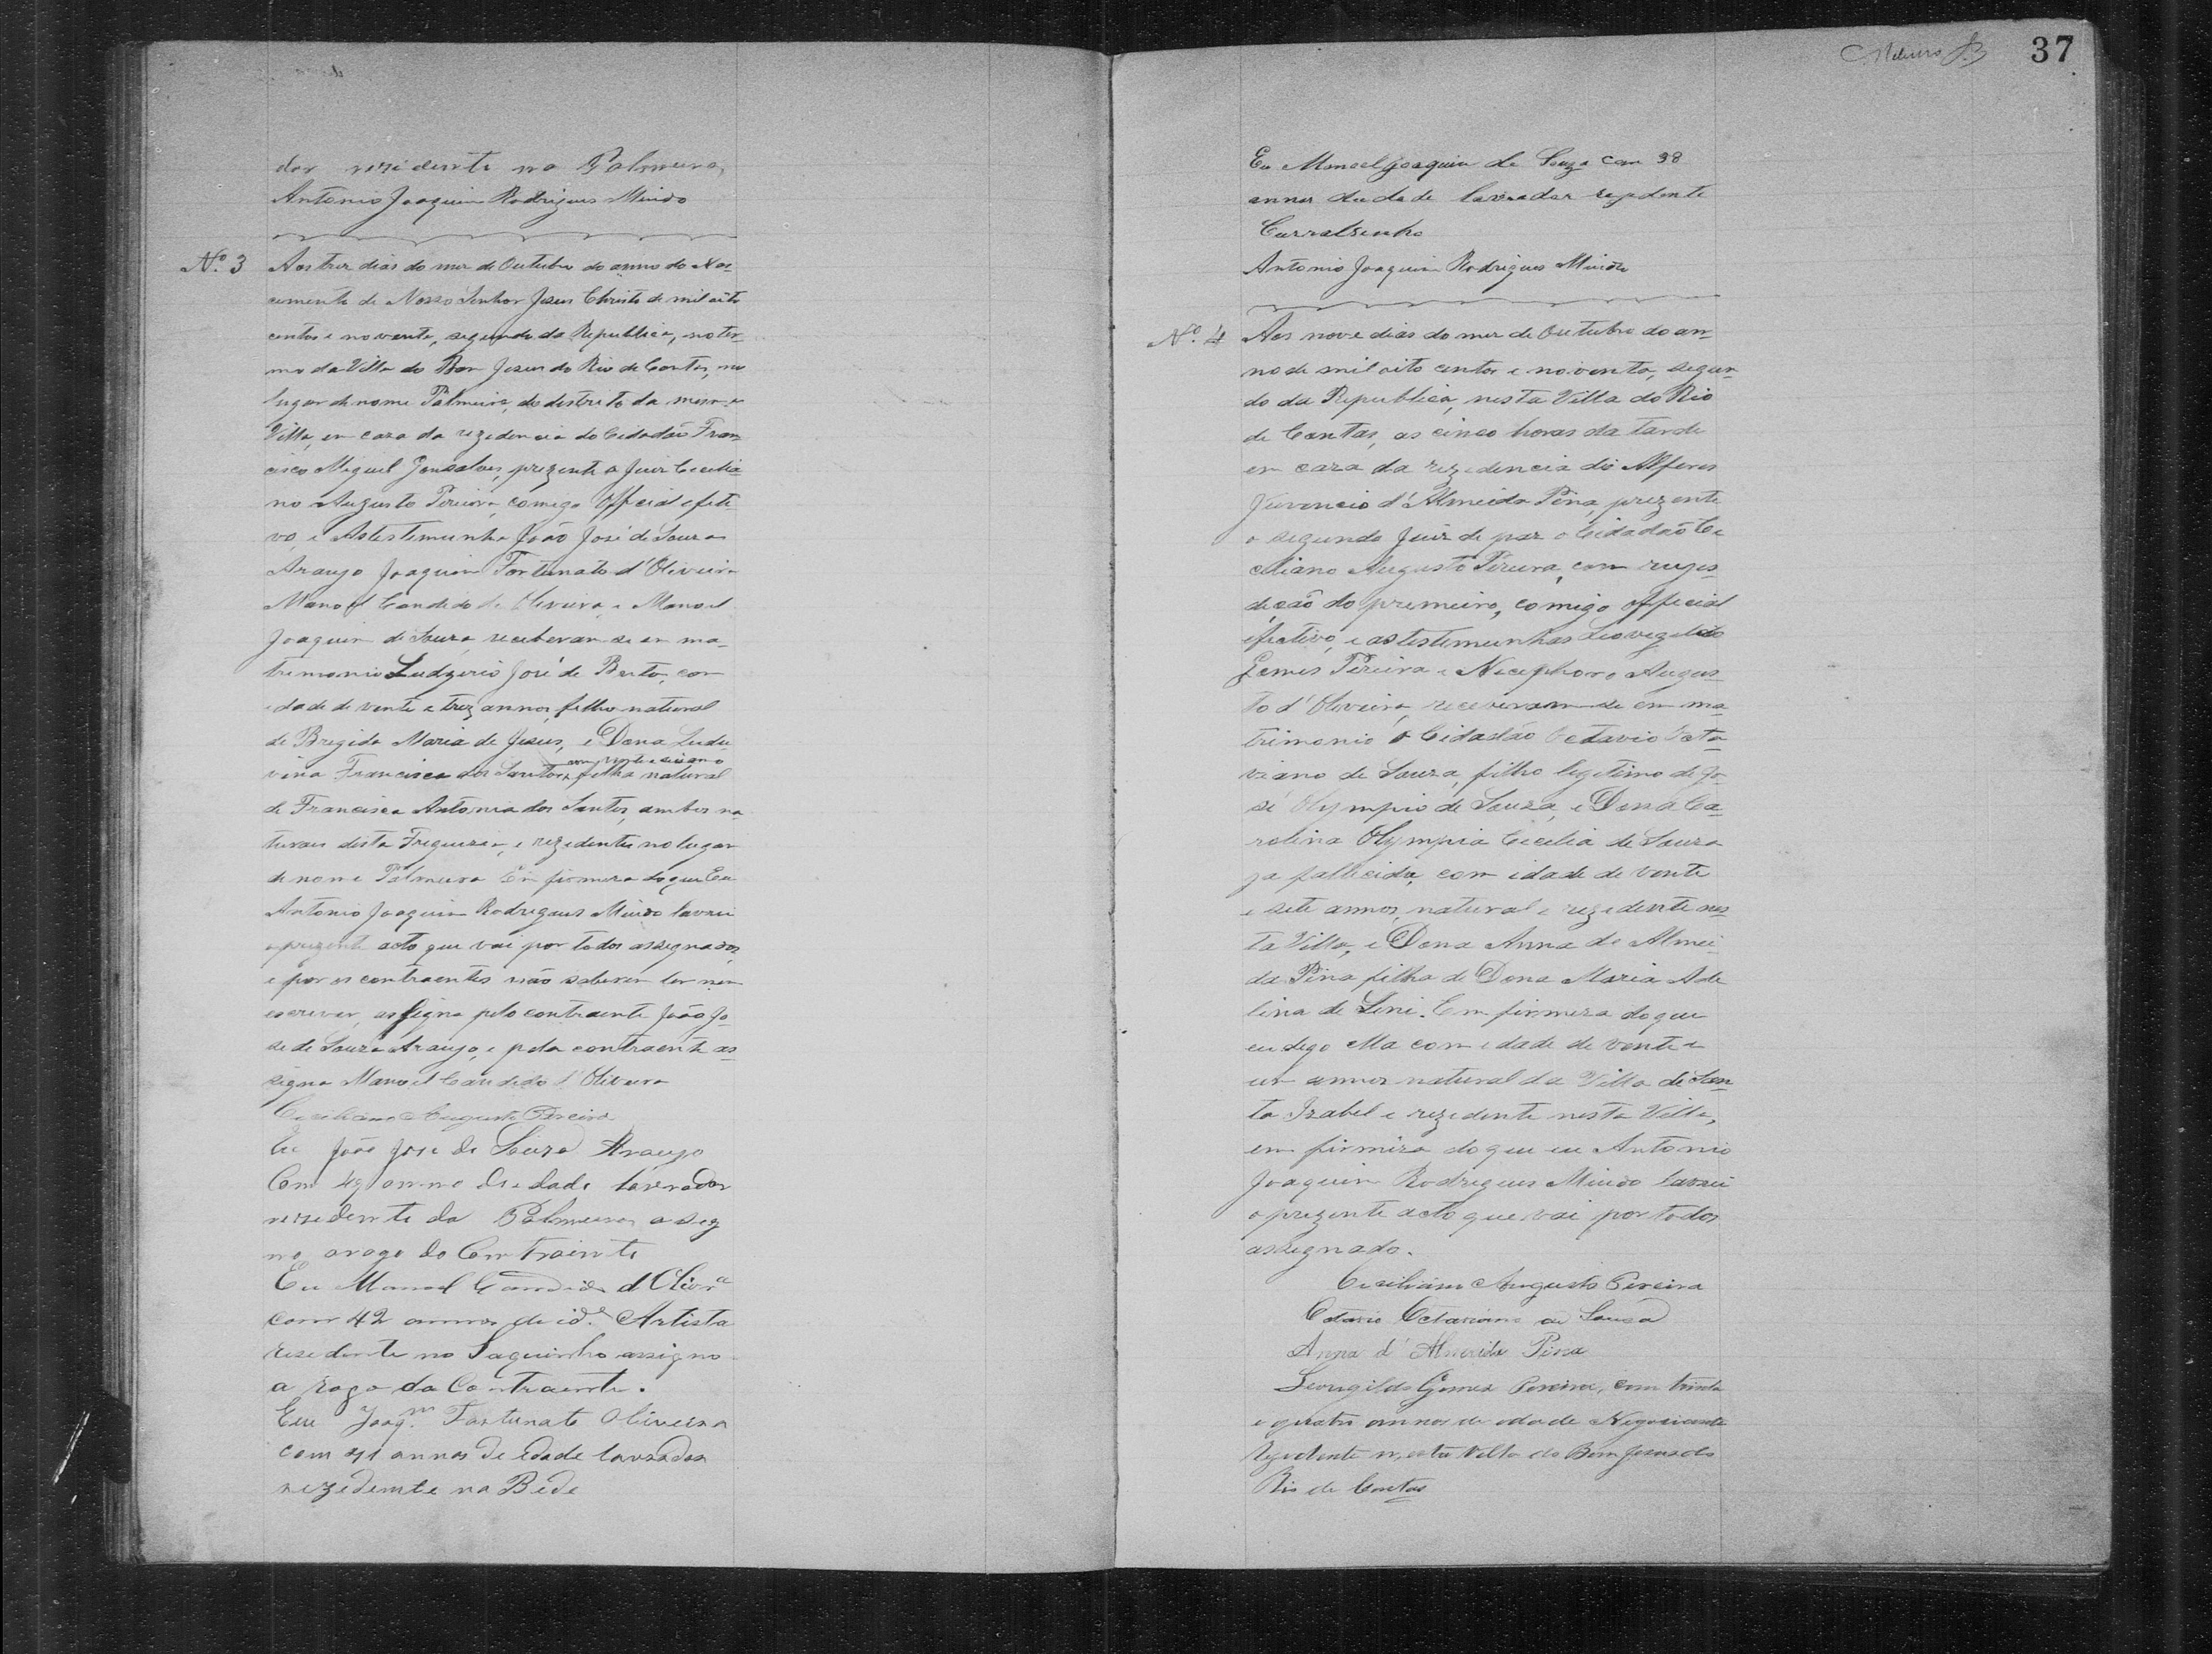 dor rezidente na Palmeira,
Antonio Joaquim Rodrigues Mindo
Nº 3 Aos trez dias do mez de Outubro do anno do Nas-
cimento de Nosso Senhor Jesus Christo de mil oito
centos e novente, segundo da Republica, no ter-
mo da Villa do Bom Jesus do Rio de Contas, no
lugar de nome Palmeira, do destreto da mesma
Villa, em caza da rezedencia do Cidadão Fran-
cisco Miguel Gonsalves, prezente o Juiz Cecilia-
no Augusto Pereira, comigo Official efeti-
vo, e Astestemunha João José de Souza
Araujo Joaquim Fortunato d'Oliveira
Manoel Candido de Oliveira, e Manoel
Joaquim de Souza, receberam se em ma-
tremonio Ludgerio José de Brito, com
idade de vente e trez annos, filho natural
de Bregida Maria de Jesus, e Dona Ludu-
vina Francisca dos Santos, filha natural
de Francisca Antonia dos Santos, ambos na-
turais desta Freguezia, e rezedentes no lugar
de nome Palmeira Em firmeza do que Eu
Antonio Joaquim Rodregues Mindo lavrei
o prezente acto que vai por todos assegnados,
e por os contraentes não saberem ler nem
escrever, assigna pelo contraente João Jo-
se de Souza Araujo, e pela contraente as-
signa Manoel Candido d'Oliveira
Ceciliano Augusto Pereira
Eu João Jose de Souza Araujo
Com 49 anno de edade lavrador
rezedente da Palmeira aseg
no arogo do Contrainte
Eu Manoel Candido d'Olivrª
com 42 annos de idᵉ. Artista
resedente no Saquinho assigno
a rogo da Contraente.
Eu Joaqᵐ Fortunato Oliveira
com 41 annos de edade lavrador
rezedemte na Bede
37
Eu Manoel Joaquim de Souza com 38
annos de dade lavrador rezedente
Curralsinho
Antonio Joaquim Rodrigues Mindo
Nº. 4 Aos nove dias do mez de Outubro do an-
no de mil oito centos e noventa, segun-
do da Republica, nesta Villa do Rio
de Contas, as cinco horas da tarde
em caza da rezedencia do Alferes
Juvencio d'Almeida Pina, prezente
o segundo Juiz de paz o Cidadão Ce-
ciliano Augusto Pereira, com
do premeiro, comigo official
efectivo, e as testemunhas Leovegildo
Gomes Pereira e Nicephoro Augus-
to d'Oliveira, receveram-se em ma-
trimonio o Cidadão Octavio Octa-
viano de Souza, filho legetimo de Jo-
sé Olympio de Souza, e Dona Ca-
rolina Olympia Cecilia de Souza
ja fallecida, com idade de vente
e sete annos, natural e rezedente nes-
ta Villa, e Dona Anna de Almei-
da Pina filha de Dona Maria Ade-
lina de Leni. Em firmeza do que
eu dego Ma com edade de vente e
um annos natural da Villa de San-
ta Izabel e rezedente nesta Villa,
em firmeza do que eu Antonio
Joaquim Rodregues Mindo lavrei
o prezente acto que vai por todos
assegnado.
Ceciliano Augusto Pereira
Octavio Octaviano de Souza
Anna d'Almeida Pina
Leovigildo Gomes Pereira, com trinta
e quatro annos de edade Negociante
rezedente n'esta Villa do Bom Jesus do
Rio de Contas